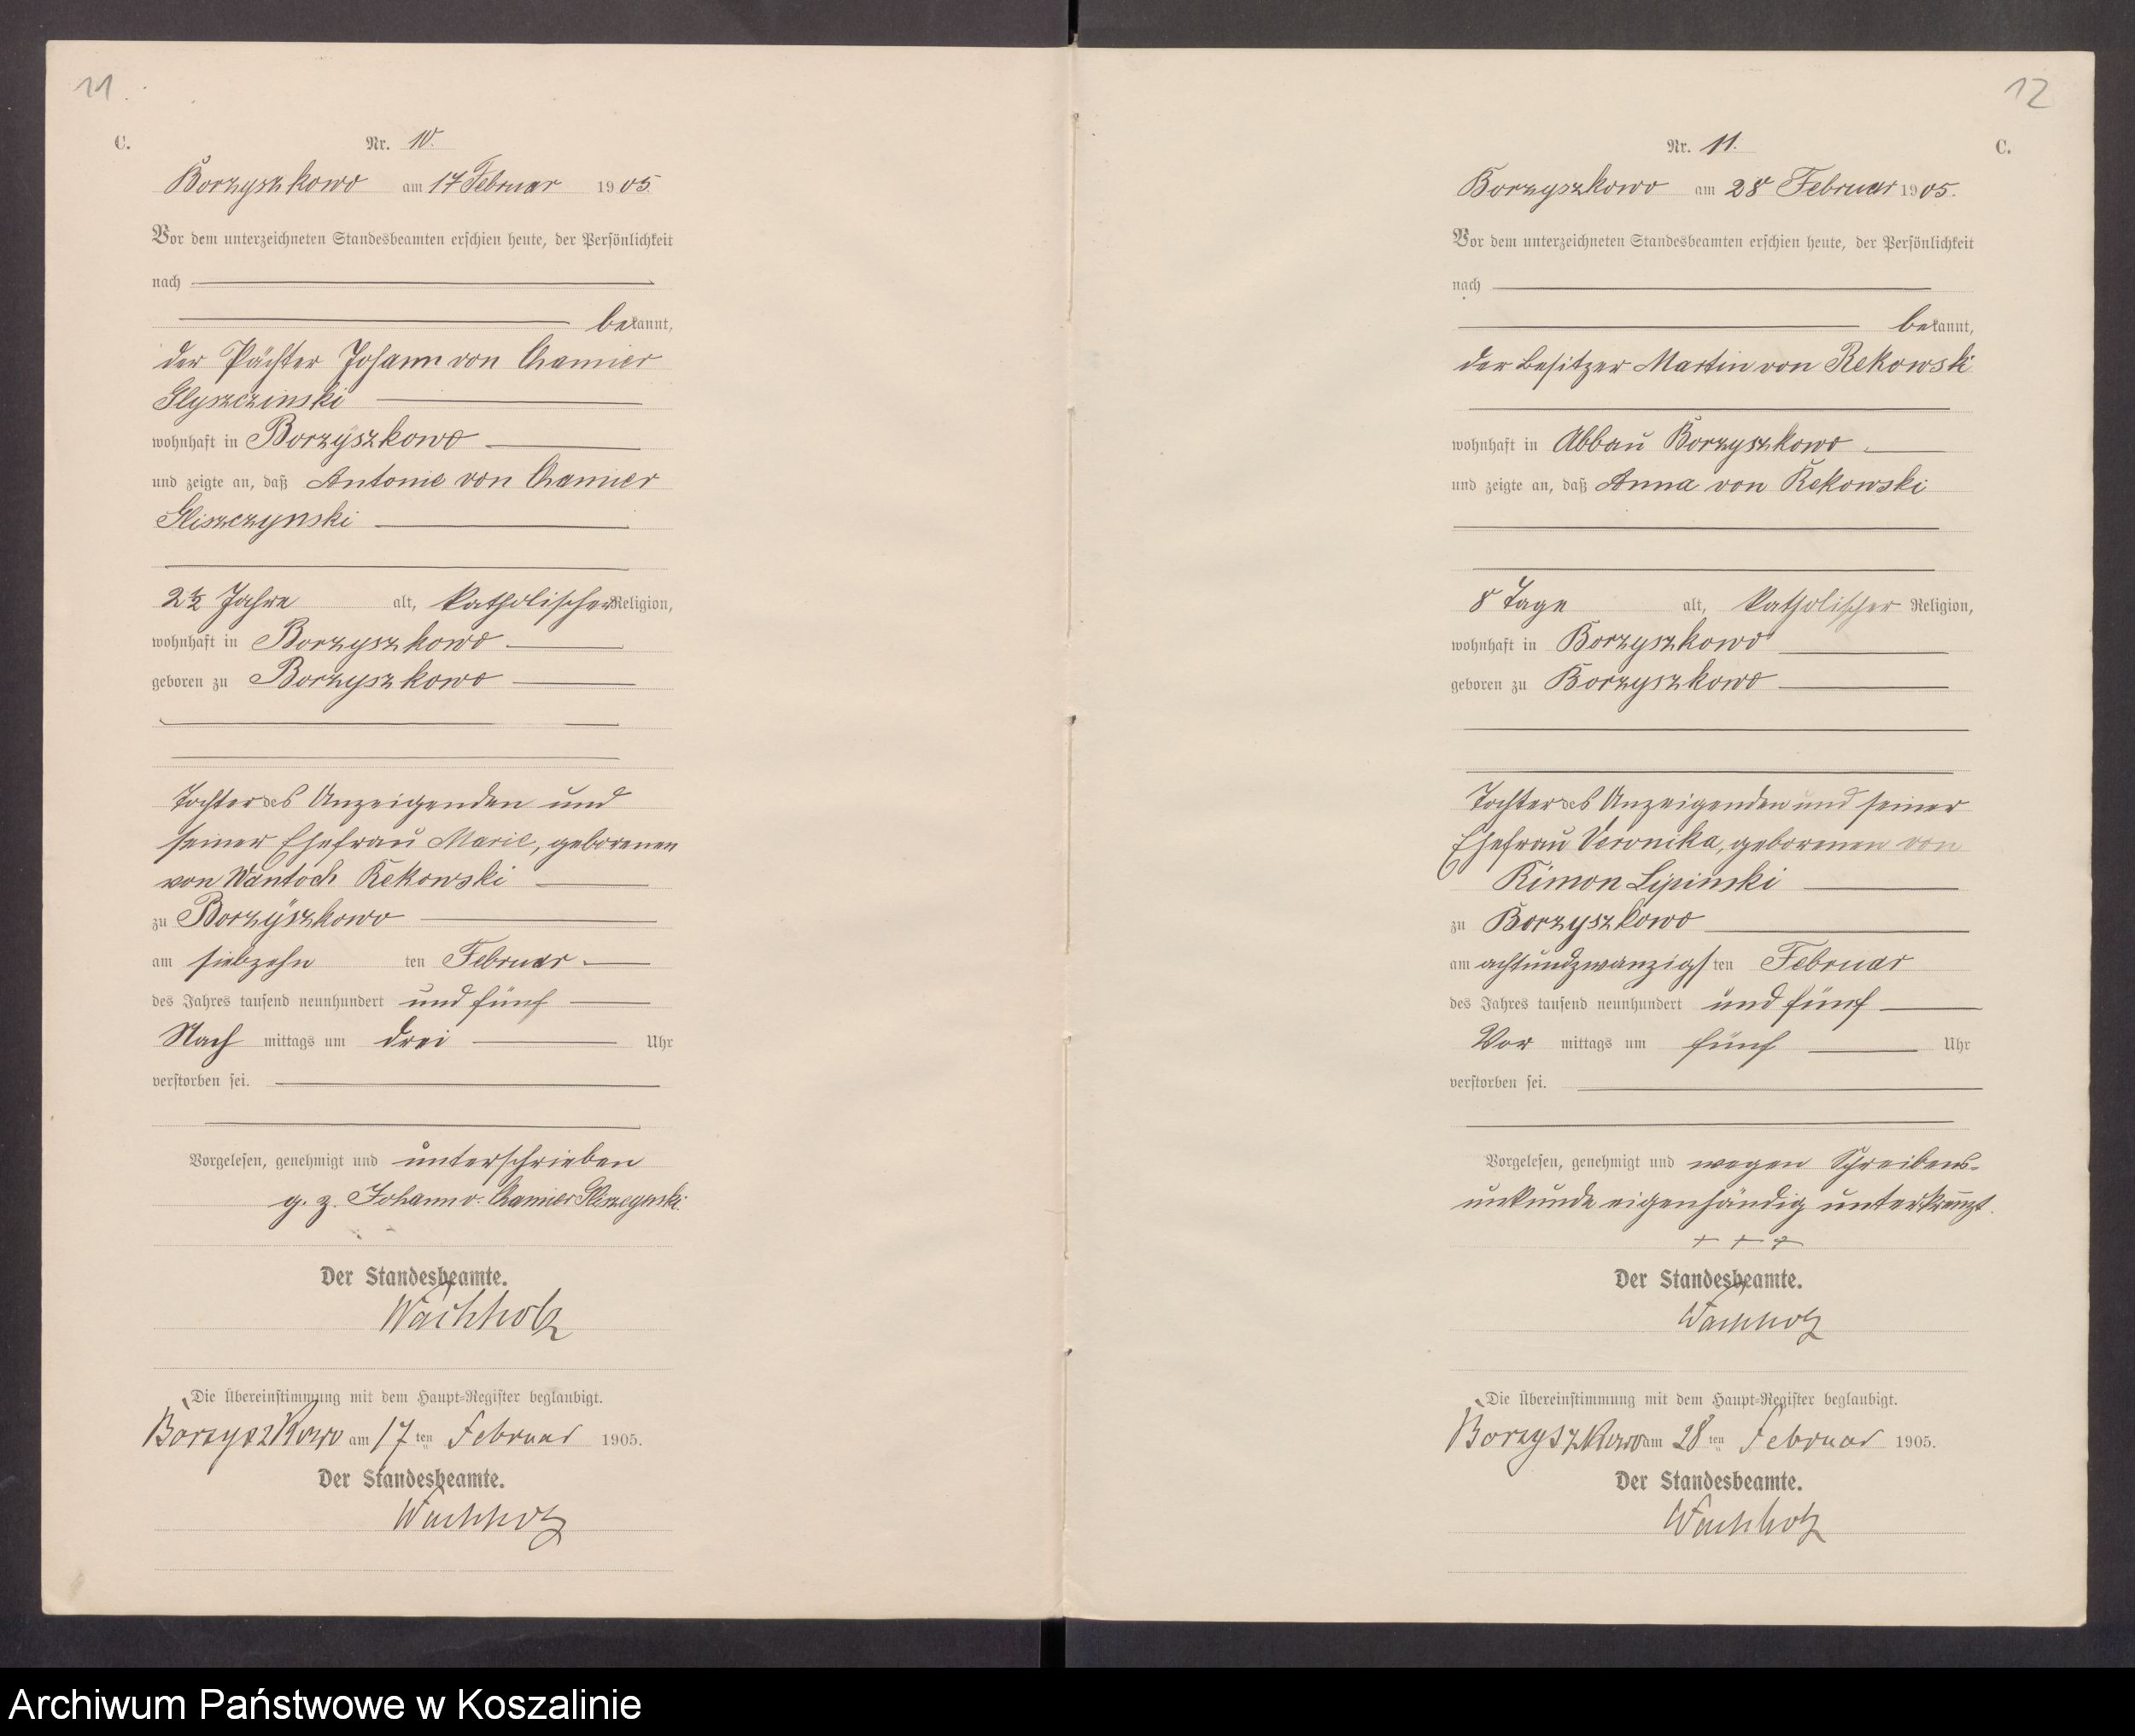 11.
C.
Nr. 10.
Borzyszkowo am 17 Februar 1905.
Vor dem unterzeichneten Standesbeamten erschien heute, der Persönlichkeit
nach
bekannt,
der Pächter Johann von Chamier
Glyszczinski
wohnhaft in Borzyszkowo
und zeigte an, daß Antonie von Chamier
Gliszczynski
2½ Jahre alt, katholischer Religion,
wohnhaft in Borzyszkowo
geboren zu Borzyszkowo
Tochter des Anzeigenden und
seiner Ehefrau Marie, geborenen
von Wantoch Rekowski
zu Borzyszkowo
am siebzehn ten Februar
des Jahres tausend neunhundert und fünf
Nach mittags um drei Uhr
verstorben sei.
Vorgelesen, genehmigt und unterschrieben
g. z. Johann v. Chamier Gliszczynski.
Der Standesbeamte.
Wachholz
Die Übereinstimmung mit dem Haupt-Register beglaubigt.
Borzyszkowo am 17 ten Februar 1905.
Der Standesbeamte.
Wachholz
12
Nr. 11.
C.
Borzyszkowo am 28 Februar 1905.
Vor dem unterzeichneten Standesbeamten erschien heute, der Persönlichkeit
nach
bekannt,
der Besitzer Martin von Rekowski
wohnhaft in Abbau Borzyszkowo
und zeigte an, daß Anna von Rekowski
8 Tage alt, katholischer Religion,
wohnhaft in Borzyszkowo
geboren zu Borzyszkowo
Tochter des Anzeigenden und seiner
Ehefrau Veronika, geborenen von
Kimon Lipinski
zu Borzyszkowo
am achtundzwanzigs ten Februar
des Jahres tausend neunhundert und fünf
Vor mittags um fünf Uhr
verstorben sei.
Vorgelesen, genehmigt und wegen Schreibens-
unkunde eigenhändig unterkreuzt.
+ + +
Der Standesbeamte.
Wachholz
Die Übereinstimmung mit dem Haupt-Register beglaubigt.
Borzyszkowo am 28 ten Februar 1905.
Der Standesbeamte.
Wachholz
Archiwum Państwowe w Koszalinie